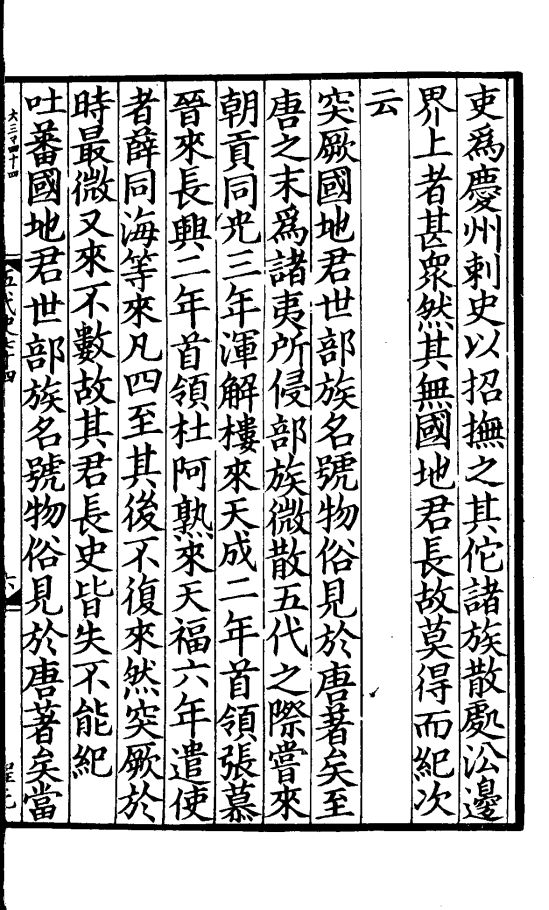 吏為慶州刺史以招撫之其佗諸族散處沿邊
界上者甚衆然其無國地君長故莫得而紀次
云
突厥國地君世部族名號物俗見於唐著矣至
唐之末為諸夷所侵部族微散五代之際嘗來
朝貢同光三年渾解樓來天成二年首領張慕
晉來長興二年首領杜阿熟來天福六年遣使
者薛同海等來凡四至其後不復來然突厥於
時最微又來不數故其君長史皆失不能紀
吐蕃國地君世部族名號物俗見於唐著矣當
大三百四十四
五代史七十四
六